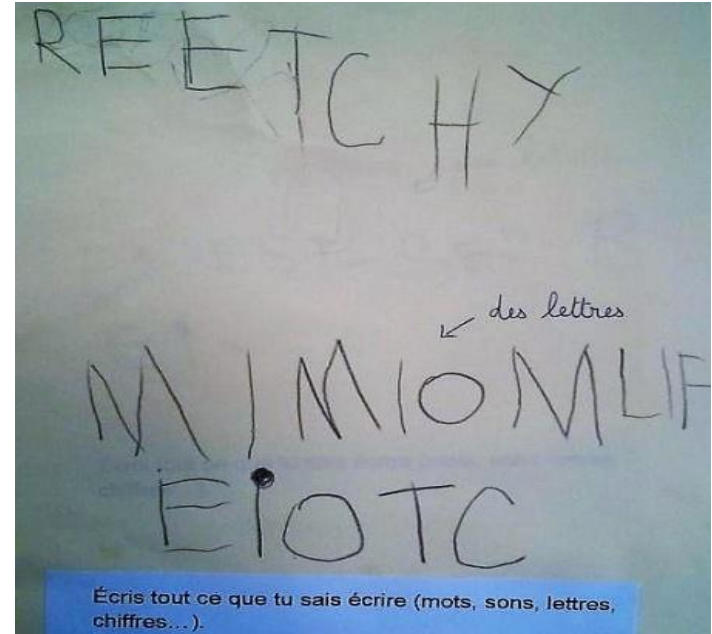 REETCHY
des lettres
MIMIOMLIF
EIOTC
Écris tout ce que tu sais écrire (mots, sons, lettres,
chiffres...).